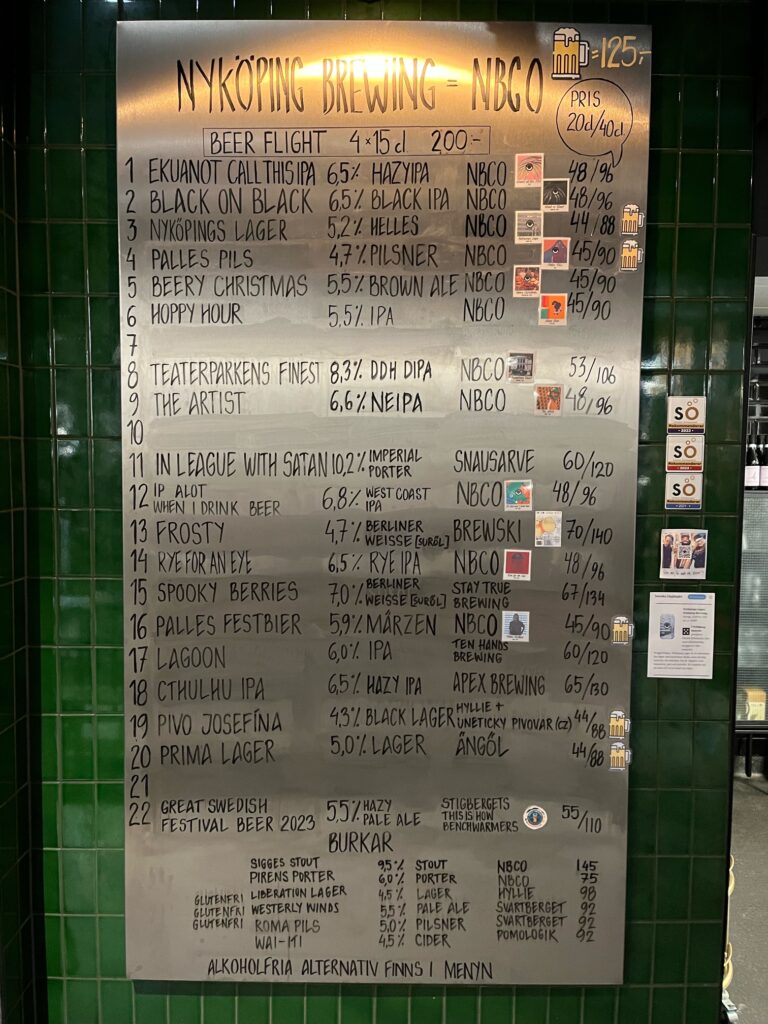 =125,-
NYKÖPING BREWING = NBCO
PRIS
20cl/40cl
BEER FLIGHT 4×15 cl 200:-
1 EKUANOT CALL THIS IPA 6,5% HAZY IPA NBCO 48/96
2 BLACK ON BLACK 6,5% BLACK IPA NBCO 48/96
3 NYKÖPINGS LAGER 5,2% HELLES NBCO 44/88
4 PALLES PILS 4,7% PILSNER NBCO 45/90
5 BEERY CHRISTMAS 5,5% BROWN ALE NBCO 45/90
6 HOPPY HOUR 5,5% IPA NBCO 45/90
7
8 TEATERPARKENS FINEST 8,3% DDH DIPA NBCO 53/106
9 THE ARTIST 6,6% NEIPA NBCO 48/96
10
11 IN LEAGUE WITH SATAN 10,2% IMPERIAL PORTER SNAUSARVE 60/120
12 IP ALOT WHEN I DRINK BEER 6,8% WEST COAST IPA NBCO 48/96
13 FROSTY 4,7% BERLINER WEISSE [SURÖL] BREWSKI 70/140
14 RYE FOR AN EYE 6,5% RYE IPA NBCO 48/96
15 SPOOKY BERRIES 7,0% BERLINER WEISSE [SURÖL] STAY TRUE BREWING 67/134
16 PALLES FESTBIER 5,9% MÄRZEN NBCO 45/90
17 LAGOON 6,0% IPA TEN HANDS BREWING 60/120
18 CTHULHU IPA 6,5% HAZY IPA APEX BREWING 65/130
19 PIVO JOSEFÍNA 4,3% BLACK LAGER HYLLIE + ÚNETICKY PIVOVAR (CZ) 44/88
20 PRIMA LAGER 5,0% LAGER ÄNGÖL 44/88
21
22 GREAT SWEDISH FESTIVAL BEER 2023 5,5% HAZY PALE ALE STIGBERGETS THIS IS HOW BENCHWARMERS 55/110
BURKAR
SIGGES STOUT 9,5% STOUT NBCO 145
PIRENS PORTER 6,0% PORTER NBCO 75
LIBERATION LAGER 4,5% LAGER HYLLIE 98
GLUTENFRI WESTERLY WINDS 5,5% PALE ALE SVARTBERGET 92
GLUTENFRI ROMA PILS 5,0% PILSNER SVARTBERGET 92
GLUTENFRI WAI-ITI 4,5% CIDER POMOLOGIK 92
ALKOHOLFRIA ALTERNATIV FINNS I MENYN
SÖ
SÖ
SÖ